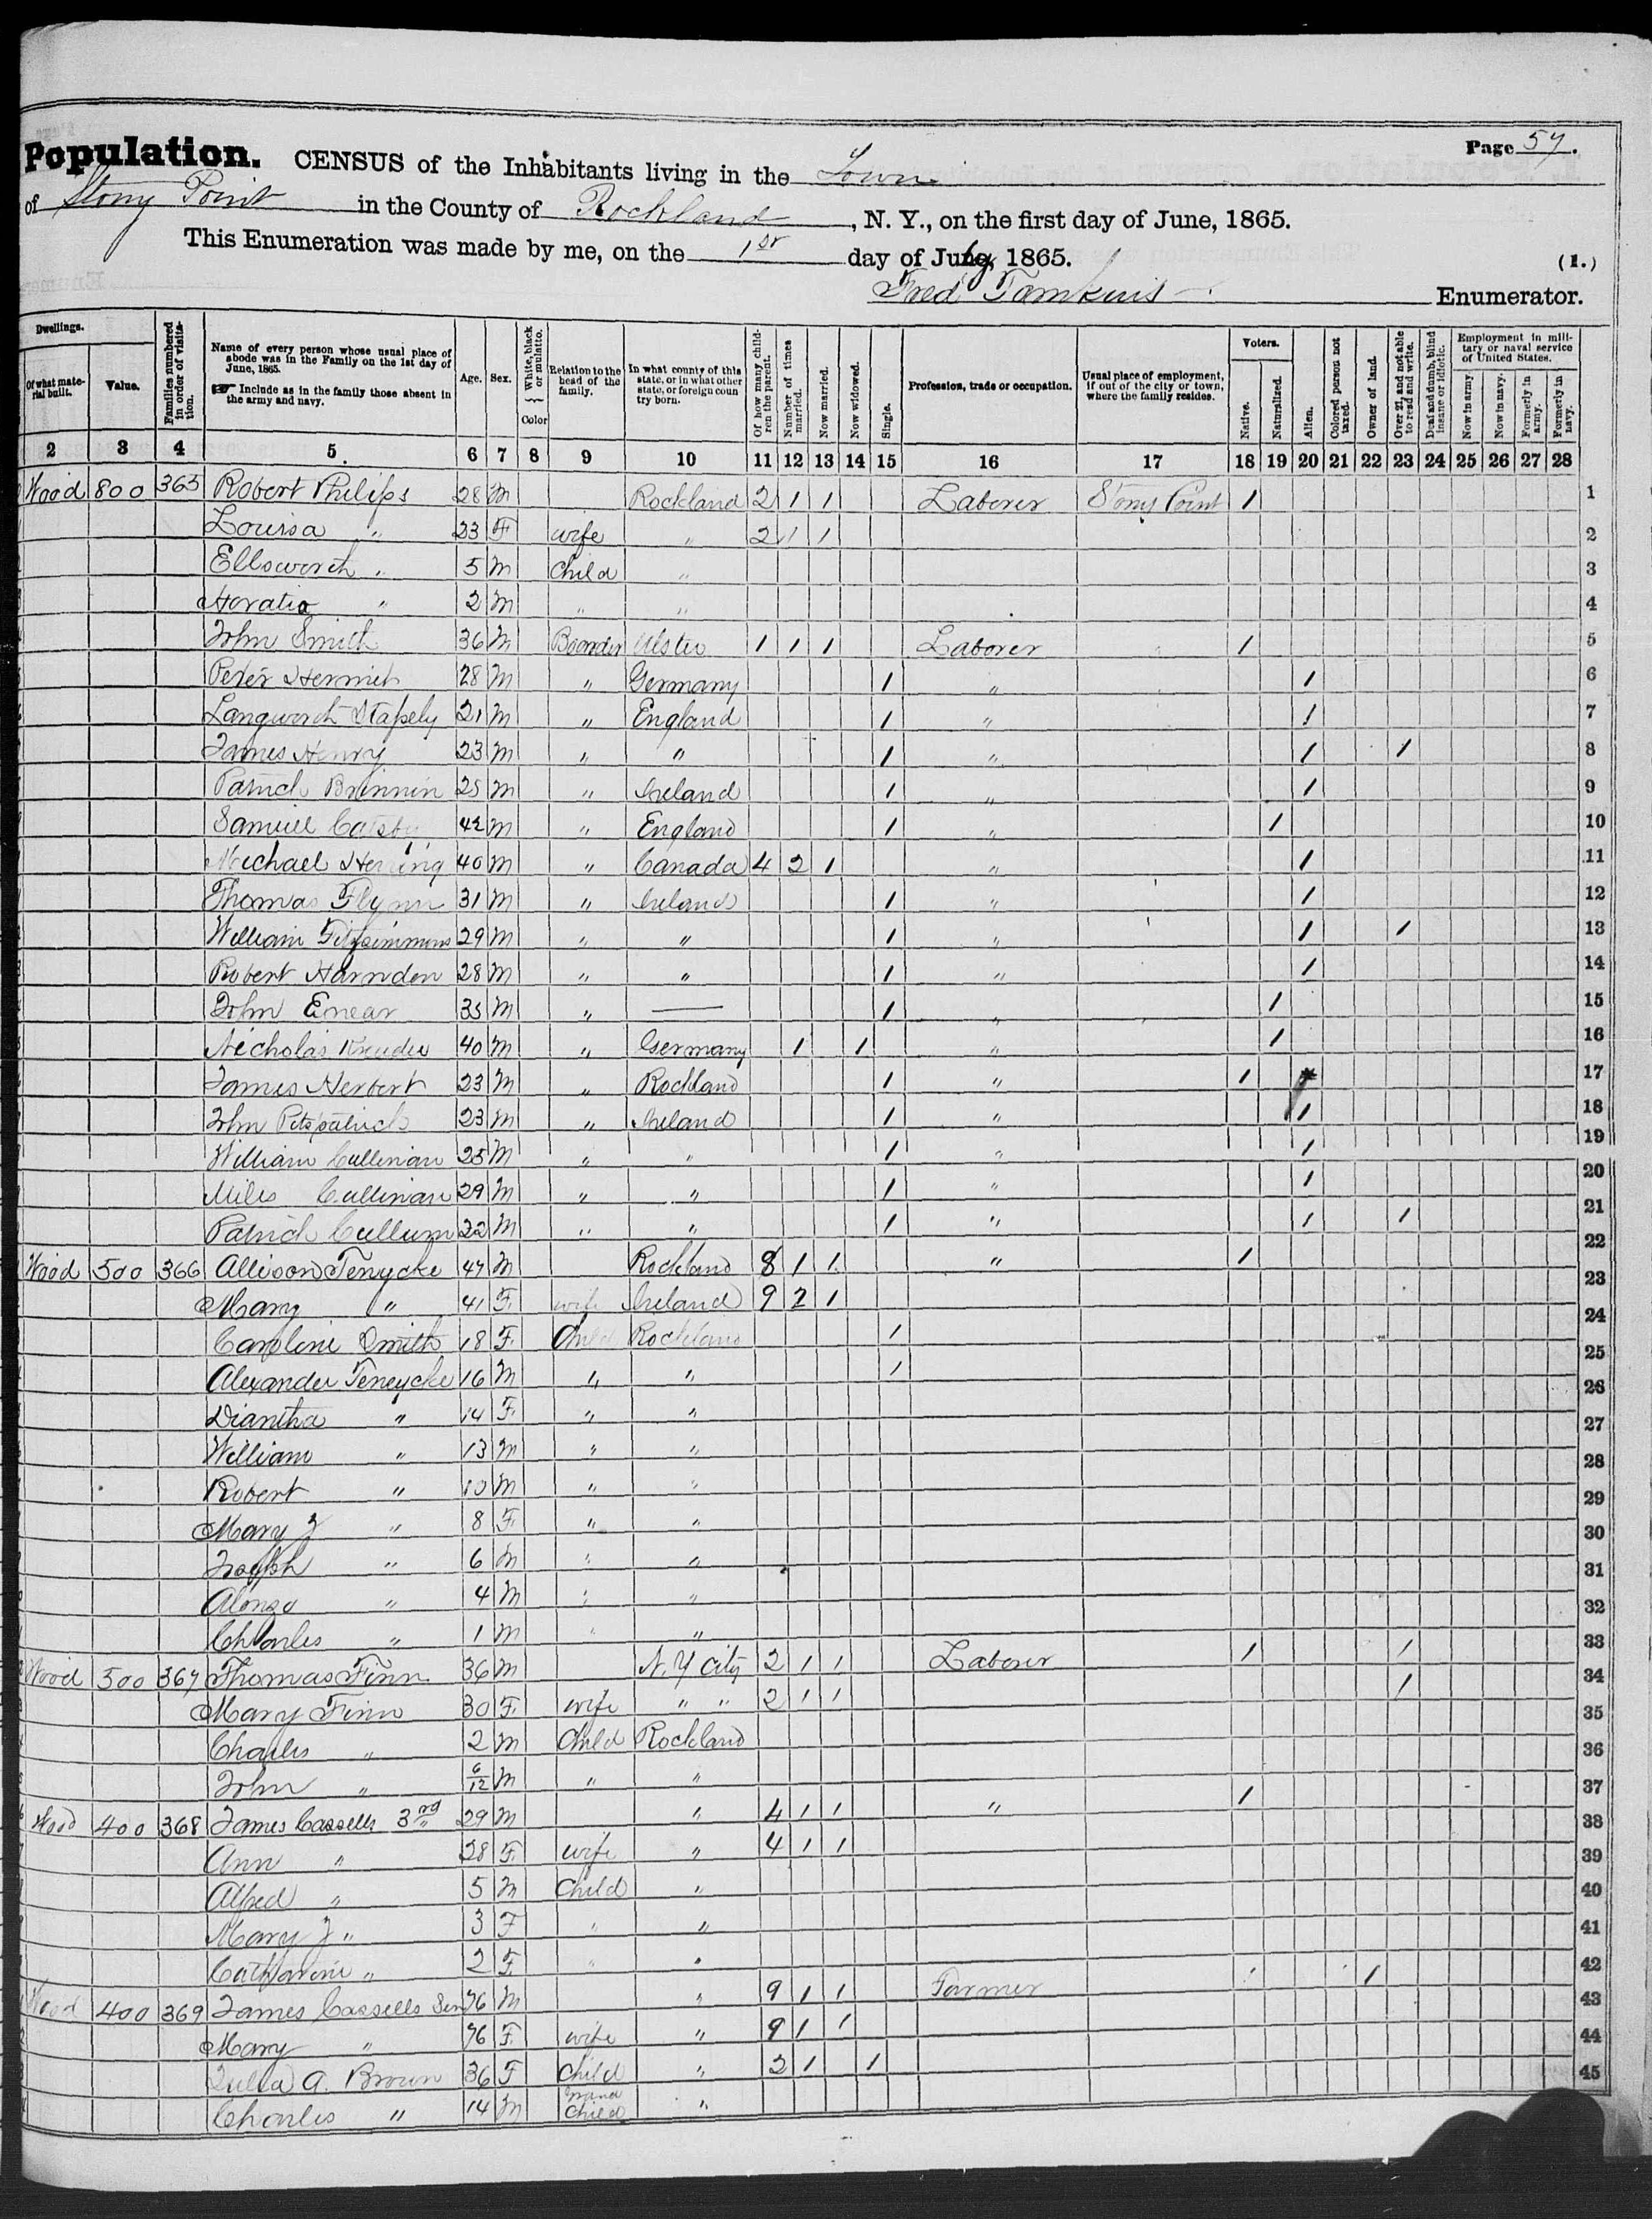 Page 57.
Population. CENSUS of the Inhabitants living in the Town
of Stony Point in the County of Rockland, N. Y., on the first day of June, 1865.
This Enumeration was made by me, on the 1st day of July, 1865.
(1.)
Fred Tomkins Enumerator.
Dwellings. Of what material built. Value. Families numbered in order of visitation. Name of every person whose usual place of abode was in the Family on the 1st day of June, 1865. ☞ Include as in the family those absent in the army and navy. Age. Sex. White, black or mulatto. } Color Relation to the head of the family. In what county of this state, or in what other state, or foreign coun try born. Of how many children the parent. Number of times married. Now married. Now widowed. Single. Profession, trade or occupation. Usual place of employment, if out of the city or town, where the family resides. Voters. Native. Naturalized. Alien. Colored person not taxed. Owner of land. Over 21, and not able to read and write. Deaf and dumb, blind insane or idiotic. Employment in military or naval service of United States. Now in army. Now in navy. Formerly in army. Formerly in navy.
2 3 4 5. 6 7 8 9 10 11 12 13 14 15 16 17 18 19 20 21 22 23 24 25 26 27 28
Wood 800 365 Robert Philips 28 M Rockland 2 1 1 Laborer Stony Point 1 1
Louisa " 23 F wife " 2 1 1 2
Ellsworth " 5 M Child " 3
Horatio " 2 M " " 4
John Smith 36 M Boarder Ulster 1 1 1 Laborer " 1 5
Peter 28 M " Germany 1 " 1 6
Langworth Stapely 21 M " England 1 " 1 7
James Henry 23 M " " 1 " 1 1 8
Patrick Brinnin 25 M " Ireland 1 " 1 9
Samuel 42 M " England 1 " 1 10
Michael 40 M " Canada 4 2 1 " 1 11
Thomas Flynn 31 M " Ireland 1 " 1 12
William Fitzsimmons 29 M " " 1 " 1 1 13
Robert Harnden 28 M " " 1 " 1 14
John Enear 35 M " — 1 " 1 15
Nicholas 40 M " Germany 1 1 " 1 16
James Herbert 23 M " Rockland 1 " 1 17
John Fitzpatrick 23 M " Ireland 1 " 1 18
William Cullinan 25 M " " 1 " 1 19
Miles Cullinan 29 M " " 1 " 1 20
Patrick Cullum 22 M " " 1 " 1 1 21
Wood 500 366 Allison Tenycke 47 M Rockland 8 1 1 " 1 22
Mary " 41 F wife Ireland 9 2 1 23
Caroline Smith 18 F Child Rockland 1 24
Alexander Teneycke 16 M " " 1 25
Diantha " 14 F " " 26
William " 13 M " " 27
Robert " 10 M " " 28
Mary J " 8 F " " 29
Joseph " 6 M " " 30
Alonzo " 4 M " " 31
Charles " 1 M " " 32
Wood 500 367 Thomas Finn 36 M N. Y City 2 1 1 Laborer 1 1 33
Mary Finn 30 F wife " " 2 1 1 1 34
Charles " 2 M Child Rockland 35
John " 6/12 M " " 36
Wood 400 368 James Cassells 3rd 29 M " 4 1 1 " 1 37
Ann " 28 F wife " 4 1 1 38
Alfred " 5 M Child " 39
Mary J " 3 F " " 40
Catharine " 2 F " " 41
Wood 400 369 James Cassells Sen 76 M " 9 1 1 Farmer 1 1 42
Mary " 76 F wife " 9 1 1 43
Julia A. Brown 36 F Child " 2 1 1 44
Charles " 14 M Grand Child " 45